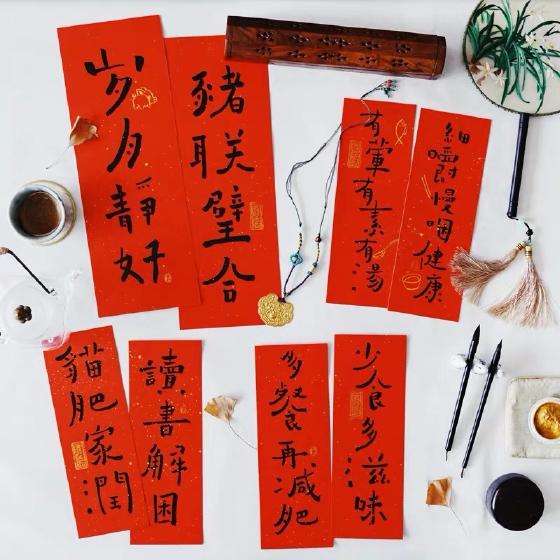 岁月靜好
豬联璧合
有葷有素有湯
細嚼慢咽健康
貓肥家潤
讀書解困
多餐再減肥
少食多滋味